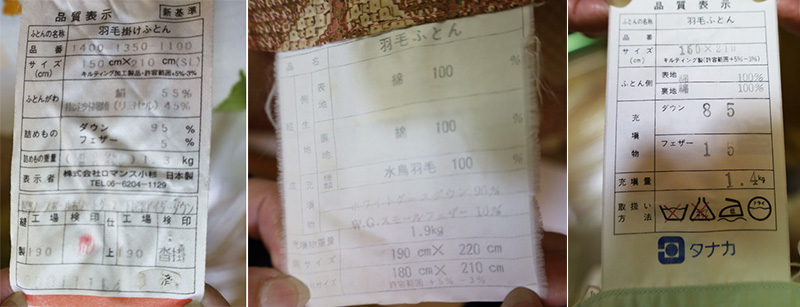 品質表示
新基準
ふとんの名称 羽毛掛けふとん
品番 1400-1350-1100
サイズ(cm) 150cm×210cm(SL)
キルティング加工製品・許容範囲+5%-3%
ふとんがわ 綿 55%
(リヨセル) 45%
詰めもの ダウン 95%
フェザー 5%
詰めもの重量 1.3kg
表示者 株式会社ロマンス小杉 日本製
TEL06-6204-1129
縫製 工場 検印 仕上 工場 検印
190 190
済
品名 羽毛ふとん
表地 綿 100%
裏地 綿 100%
水鳥羽毛 100%
ホワイトグースダウン 90%
W.G.スモールフェザー 10%
充填物重量 1.9kg
190cm×220cm
180cm×210cm
許容範囲+5%-3%
品質表示
ふとんの名称 羽毛ふとん
品番
サイズ(cm) 150×210
キルティング製(許容範囲+5%-3%)
ふとん側 表地 綿 100%
裏地 綿 100%
充填物 ダウン 85%
フェザー 15%
充填量 1.4kg
取扱い方法
タナカ